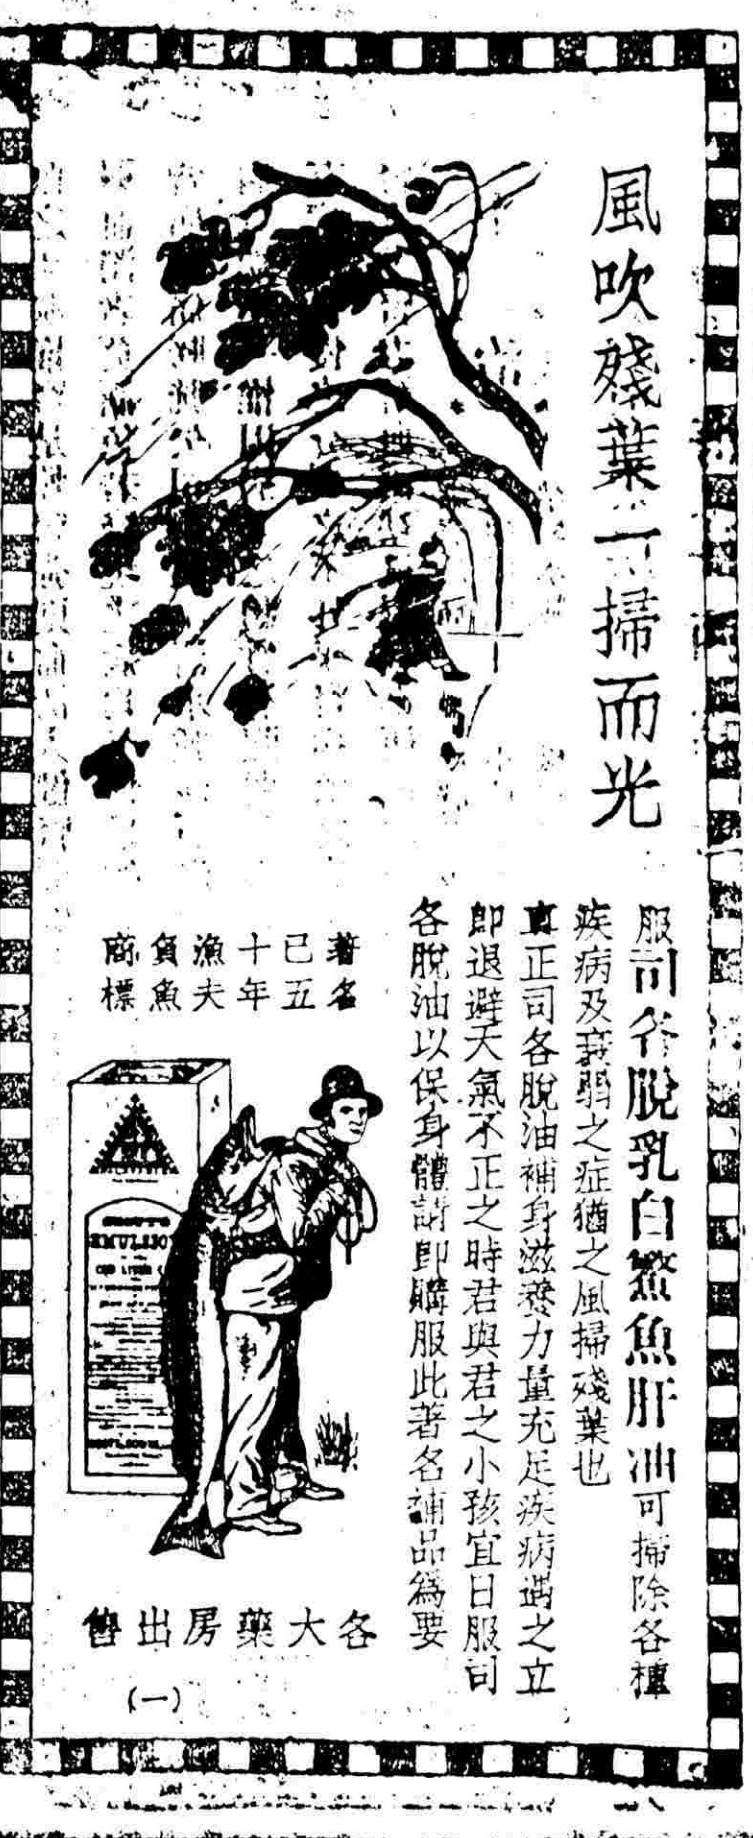 風吹殘葉一掃而光
服司各脫乳白鰵魚肝油可掃除各種
疾病及衰弱之症猶之風掃殘葉也
真正司各脫油補身滋養力量充足疾病遇之立
即退避天氣不正之時君與君之小孩宜日服司
各脫油以保身體請即購服此著名補品為要
著名
已五
十年
漁夫
負魚
商標
SCOTT'S
EMULSION
COD LIVER
各大藥房出售
(一)